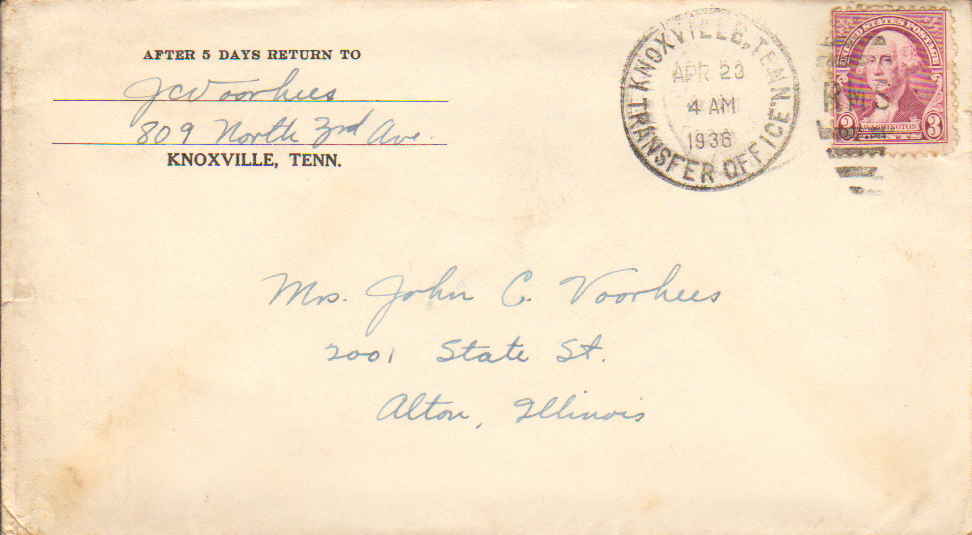 AFTER 5 DAYS RETURN TO
JCVoorhees
809 North 3rd Ave.
KNOXVILLE, TENN.
KNOXVILLE, TENN.
APR 23
4 AM
1936
TRANSFER OFFICE
R.M.S.
UNITED STATES POSTAGE
3 WASHINGTON 3
Mrs. John C. Voorhees
2001 State St.
Alton, Illinois